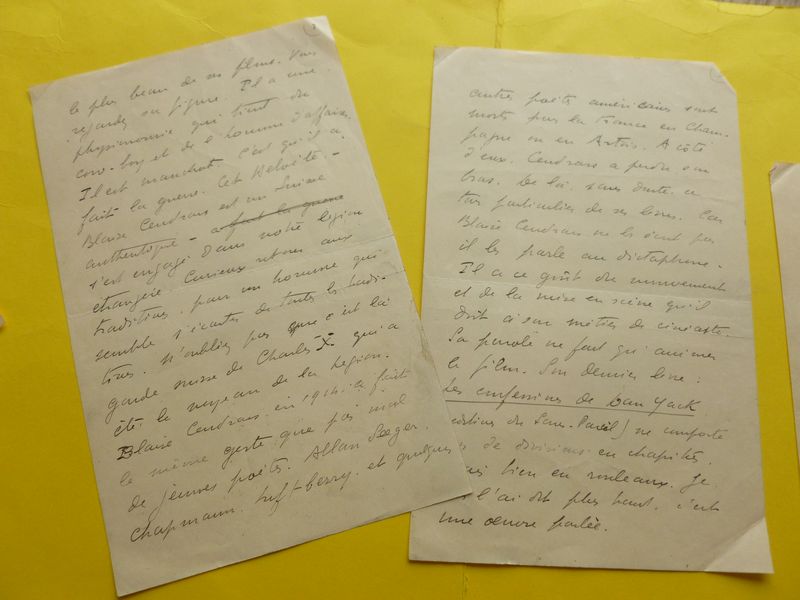 le plus beau de ses films. Vous
regardez sa figure. Il a une
physionomie qui tient du
cow-boy et de l'homme d'affaires
Il est manchot. C'est qu'il a
fait la guerre. Cet Helvète. -
Blaise Cendrars est un Suisse
authentique - a fait la guerre
s'est engagé dans notre légion
étrangère. Curieux retour aux
traditions, pour un homme qui
semble s'écarter de toutes les tradi-
tions. N'oubliez pas que c'est la
garde suisse de Charles X qui a
été le noyau de la Légion.
Blaise Cendrars en 1914 a fait
le même geste que pas mal
de jeunes poètes. Allan Seeger.
Chapmann. et quelques
autres poètes américains sont
morts pour la France en Cham-
pagne ou en Artois. A côté
d'eux. Cendrars a perdu son
bras. De là, sans doute, ce
ton particulier de ses livres. Car
Blaise Cendrars ne les écrit pas
il les parle au dictaphone.
Il a ce goût du mouvement
et de la mise en scène qu'il
doit à son métier de cinéaste.
Sa parole ne fait qu'animer
le film. Son dernier livre :
Les confessions de Dan Yack
(éditions du Sans-Pareil) ne comporte
de divisions en chapitres.
bien en rouleaux. Je
l'ai dit plus haut, c'est
une œuvre parlée.